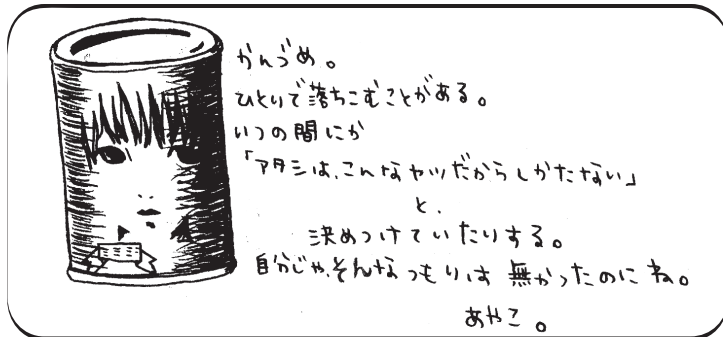 かんづめ。
ひとりで落ちこむことがある。
いつの間にか
「アタシは、こんなヤツだからしかたない」
と、
決めつけていたりする。
自分じゃ、そんなつもりは 無かったのにね。
あやこ。